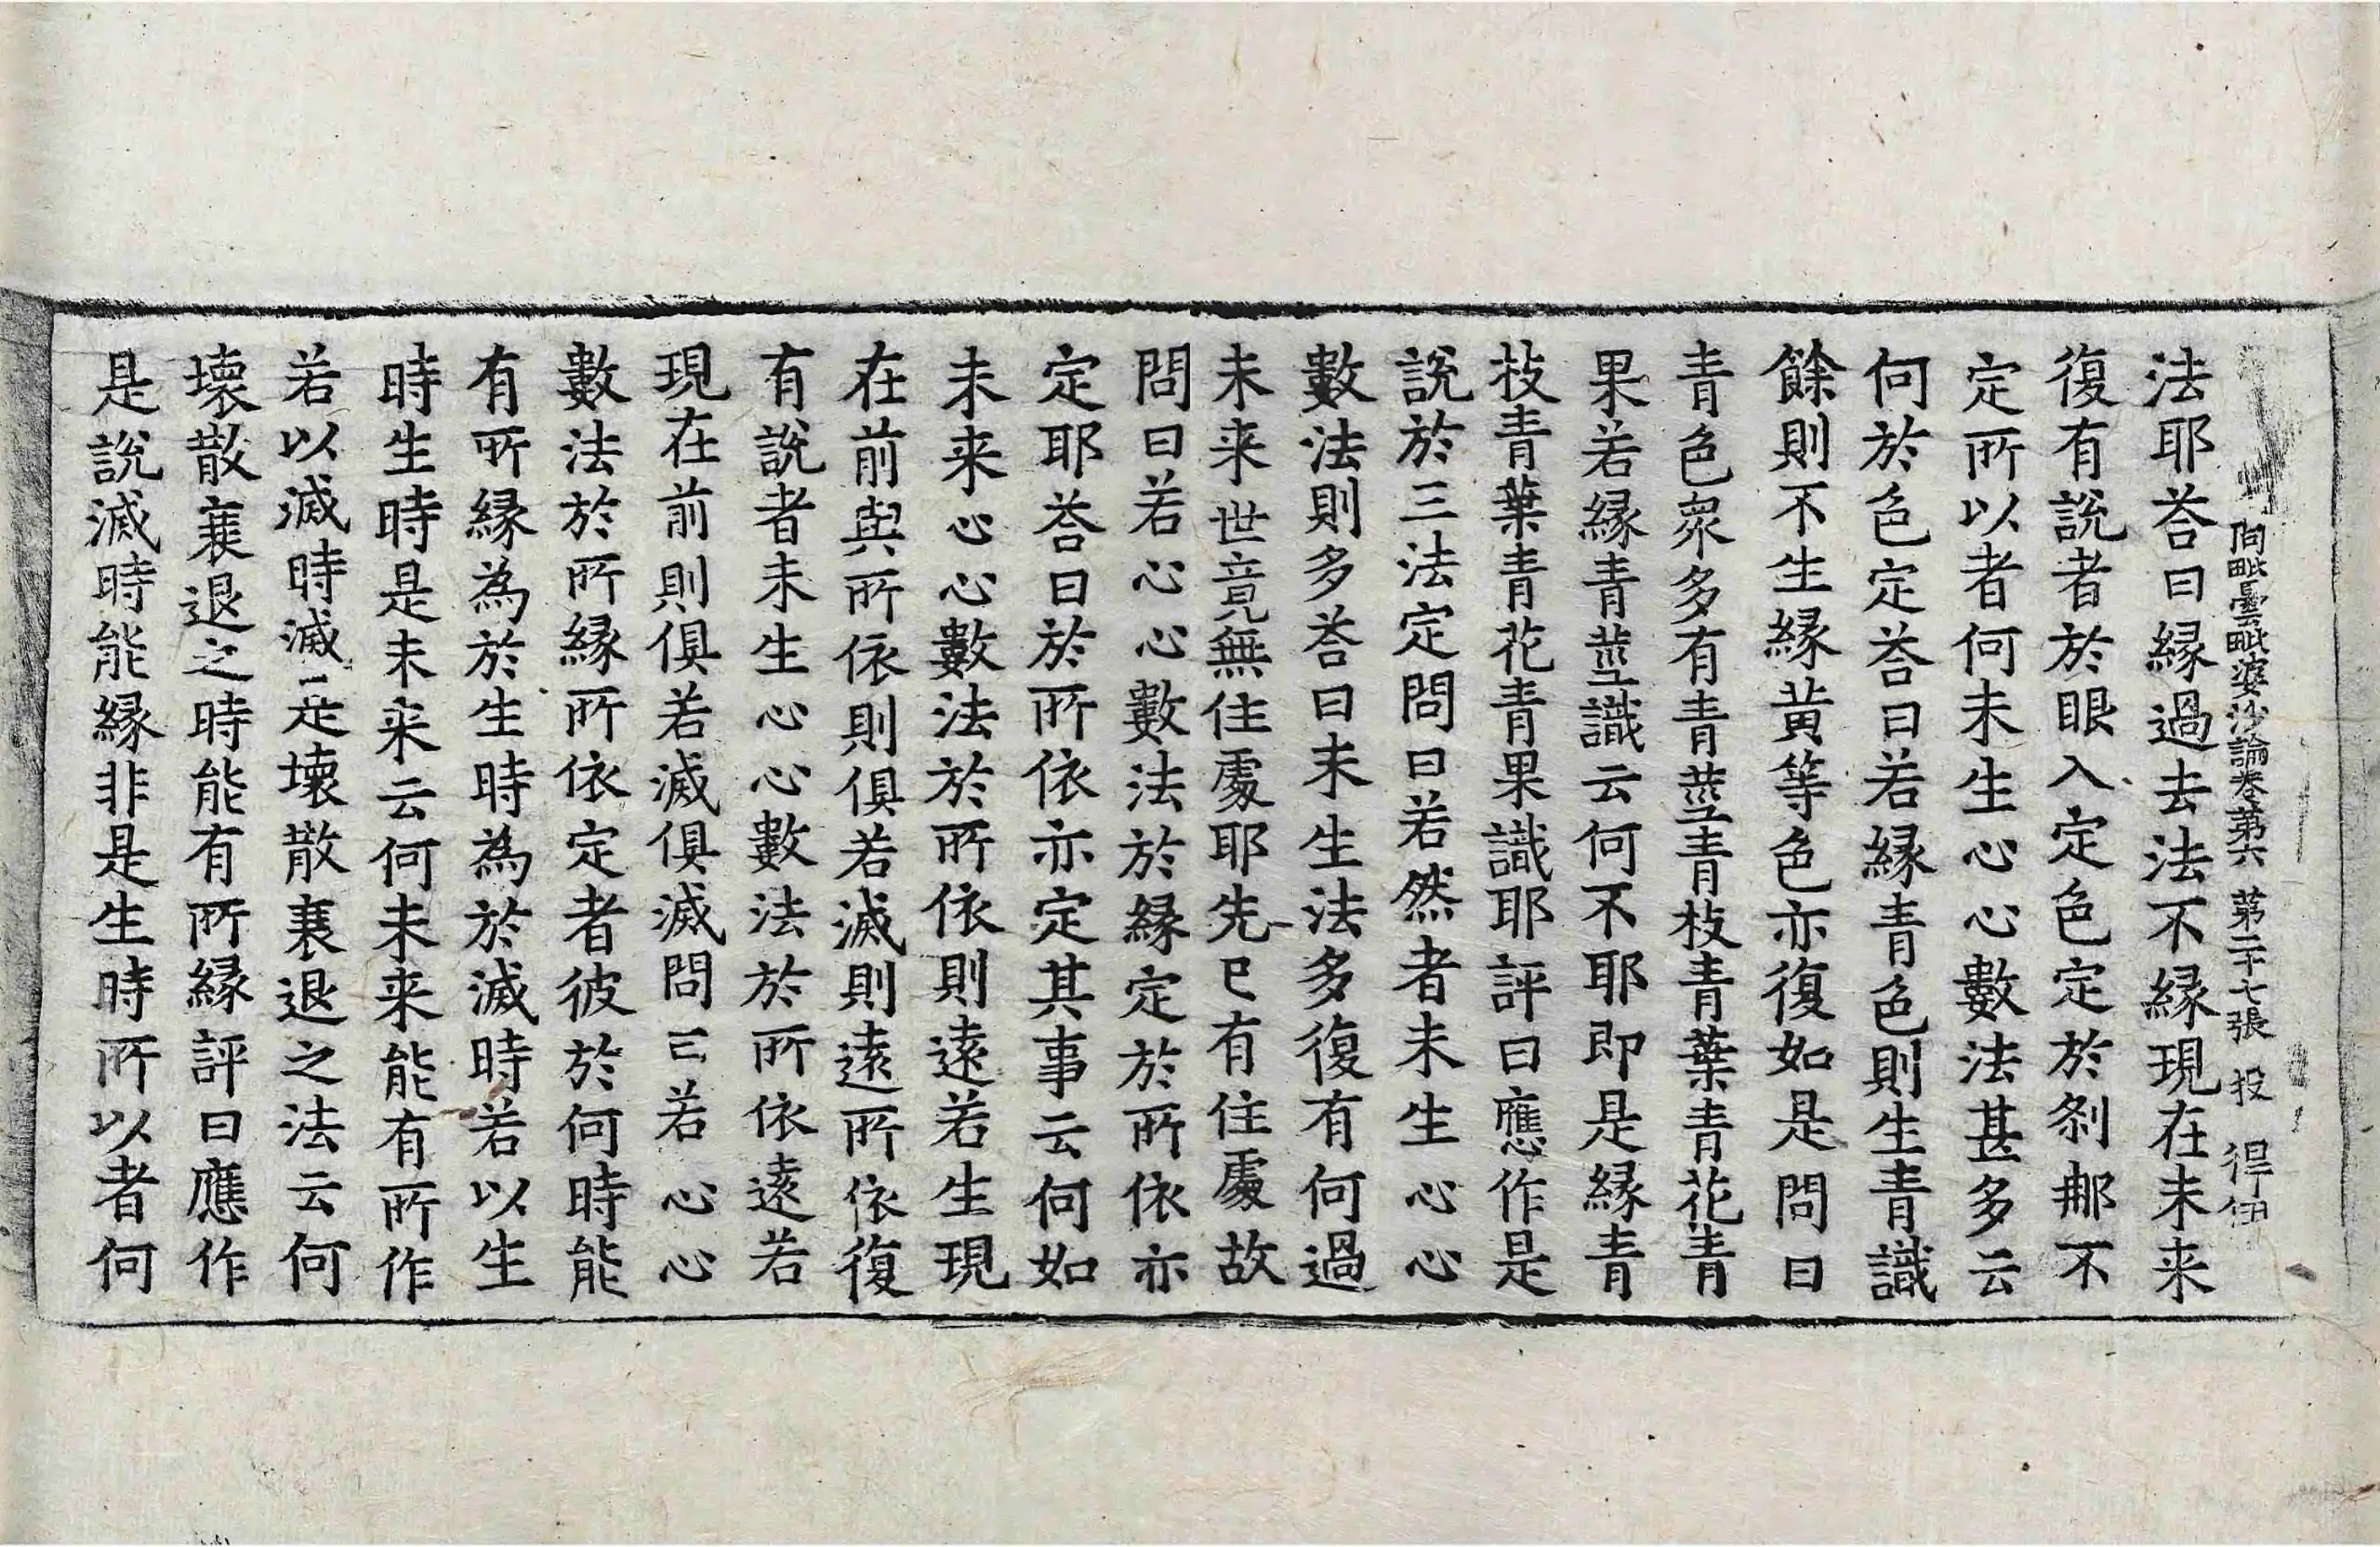 阿毗曇毗婆沙論卷第六 第二十七張 投
法耶荅曰縁過去法不縁現在未来
復有說者於眼入定色定於刹那不
定所以者何未生心心數法甚多云
何於色定荅曰若縁青色則生青識
餘則不生縁黄等色亦復如是問曰
青色衆多有青莖青枝青葉青花青
果若縁青莖識云何不耶即是縁青
枝青葉青花青果識耶評曰應作是
說於三法定問曰若然者未生心心
數法則多荅曰未生法多復有何過
未来世竟無住處耶先已有住處故
問曰若心心數法於縁定於所依亦
定耶荅曰於所依亦定其事云何如
未来心心數法於所依則遠若生現
在前與所依則俱若滅則遠所依復
有說者未生心心數法於所依遠若
現在前則俱若滅俱滅問曰若心心
數法於所縁所依定者彼於何時能
有所縁為於生時為於滅時若以生
時生時是未来云何未来能有所作
若以滅時滅是壞散衰退之法云何
壞散衰退之時能有所縁評曰應作
是說滅時能縁非是生時所以者何